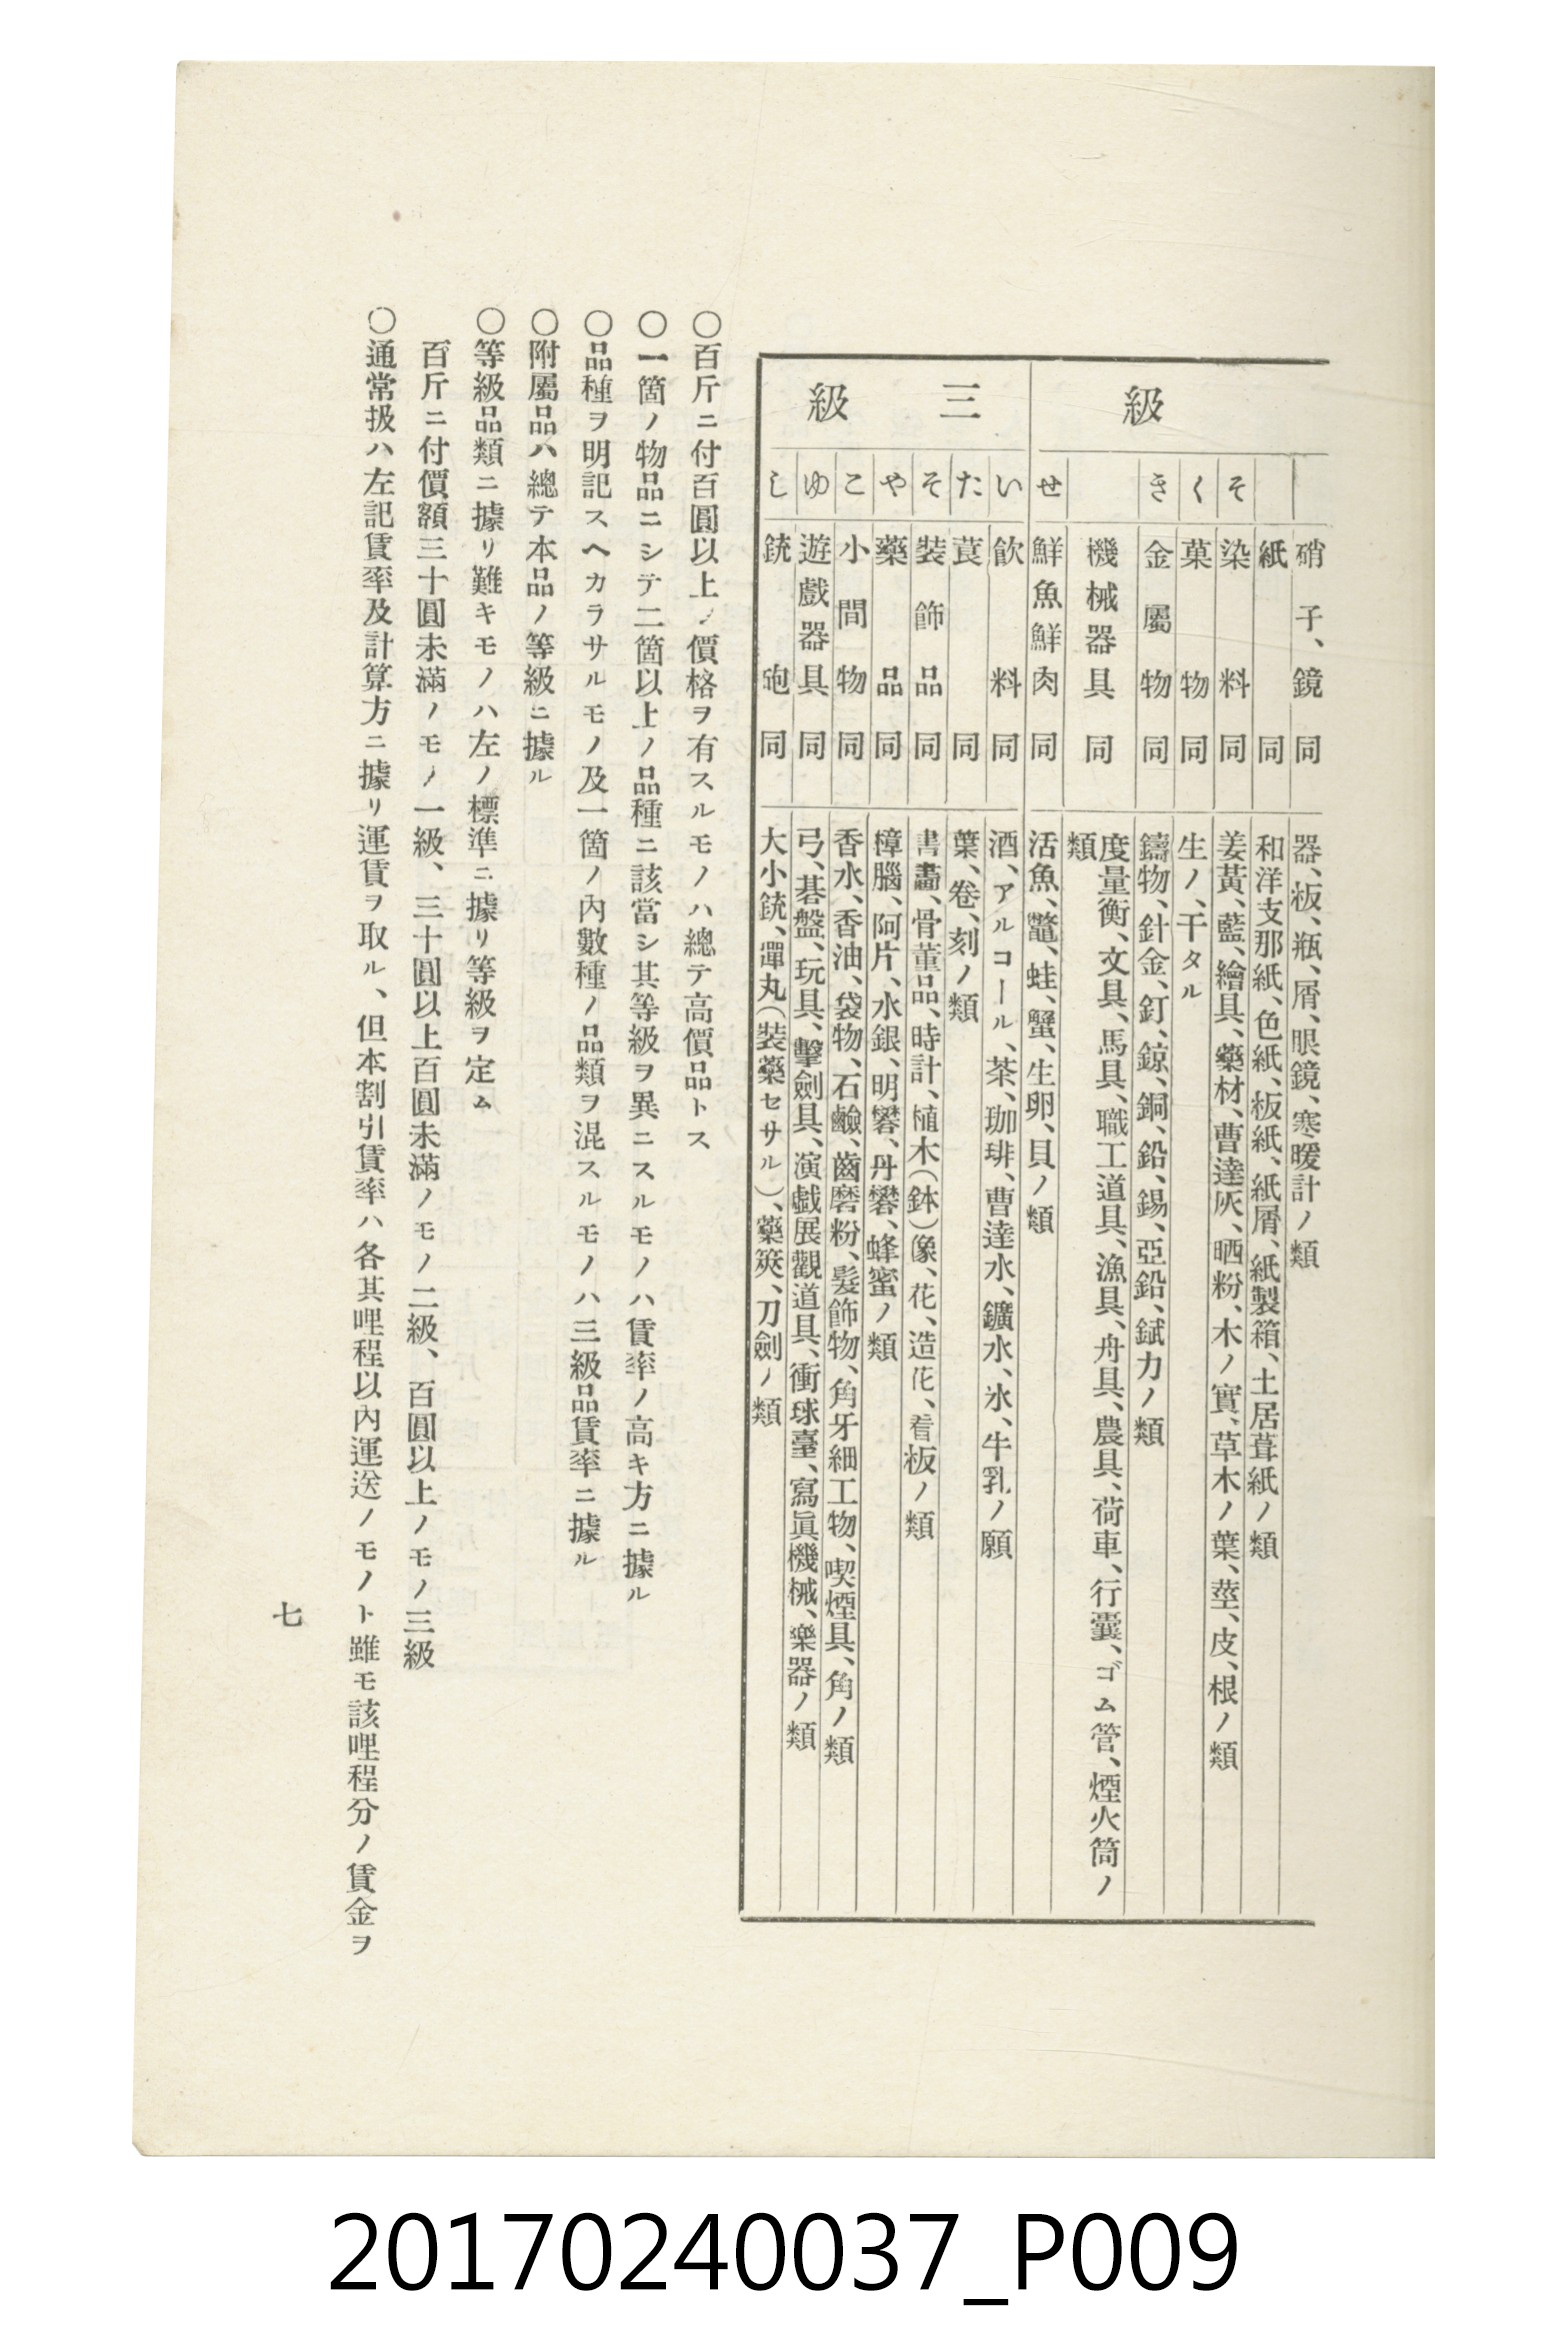 級
硝子、鏡 同 器、板、瓶、屑、眼鏡、寒暖計ノ類
紙 同 和洋支那紙、色紙、板紙、紙屑、紙製箱、土居葺紙ノ類
そ 染料 同 姜黃、藍、繪具、藥材、曹達灰、晒粉、木ノ實、草木ノ葉、莖、皮、根ノ類
く 菓物 同 生ノ、干タル
き 金屬物 同 鑄物、針金、釘、鋴、銅、鉛、錫、亞鉛、錻力ノ類
機械器具 同 度量衡、文具、馬具、職工道具、漁具、舟具、農具、荷車、行囊、ゴム管、煙火筒ノ
類
せ 鮮魚鮮肉 同 活魚、鼈、蛙、蟹、生卵、貝ノ類
三級
い 飮料 同 酒、アルコール、茶、珈琲、曹達水、鑛水、氷、牛乳ノ願
た 莨 同 葉、卷、刻ノ類
そ 裝飾品 同 書畵、骨董品、時計、植木(鉢)像、花、造花、看板ノ類
や 藥品 同 樟腦、阿片、水銀、明礬、丹礬、蜂蜜ノ類
こ 小間物 同 香水、香油、袋物、石鹼、齒磨粉、髮飾物、角牙細工物、喫煙具、角ノ類
ゆ 遊戲器具 同 弓、碁盤、玩具、擊劍具、演戯展觀道具、衝球臺、寫眞機械、樂器ノ類
し 銃砲 同 大小銃、彈丸(裝藥セサル)、藥筴、刀劍ノ類
〇百斤ニ付百圓以上ノ價格ヲ有スルモノハ總テ高價品トス
〇一箇ノ物品ニシテ二箇以上ノ品種ニ該當シ其等級ヲ異ニスルモノハ賃率ノ高キ方ニ據ル
〇品種ヲ明記スヘカラサルモノ及一箇ノ內數種ノ品類ヲ混スルモノハ三級品賃率ニ據ル
〇附屬品ハ總テ本品ノ等級ニ據ル
〇等級品類ニ據リ難キモノハ左ノ標準ニ據リ等級ヲ定ム
百斤ニ付價額三十圓未滿ノモノ一級、三十圓以上百圓未滿ノモノ二級、百圓以上ノモノ三級
〇通常扱ハ左記賃率及計算方ニ據リ運賃ヲ取ル、但本割引賃率ハ各其哩程以內運送ノモノト雖モ該哩程分ノ賃金ヲ
七
20170240037_P009